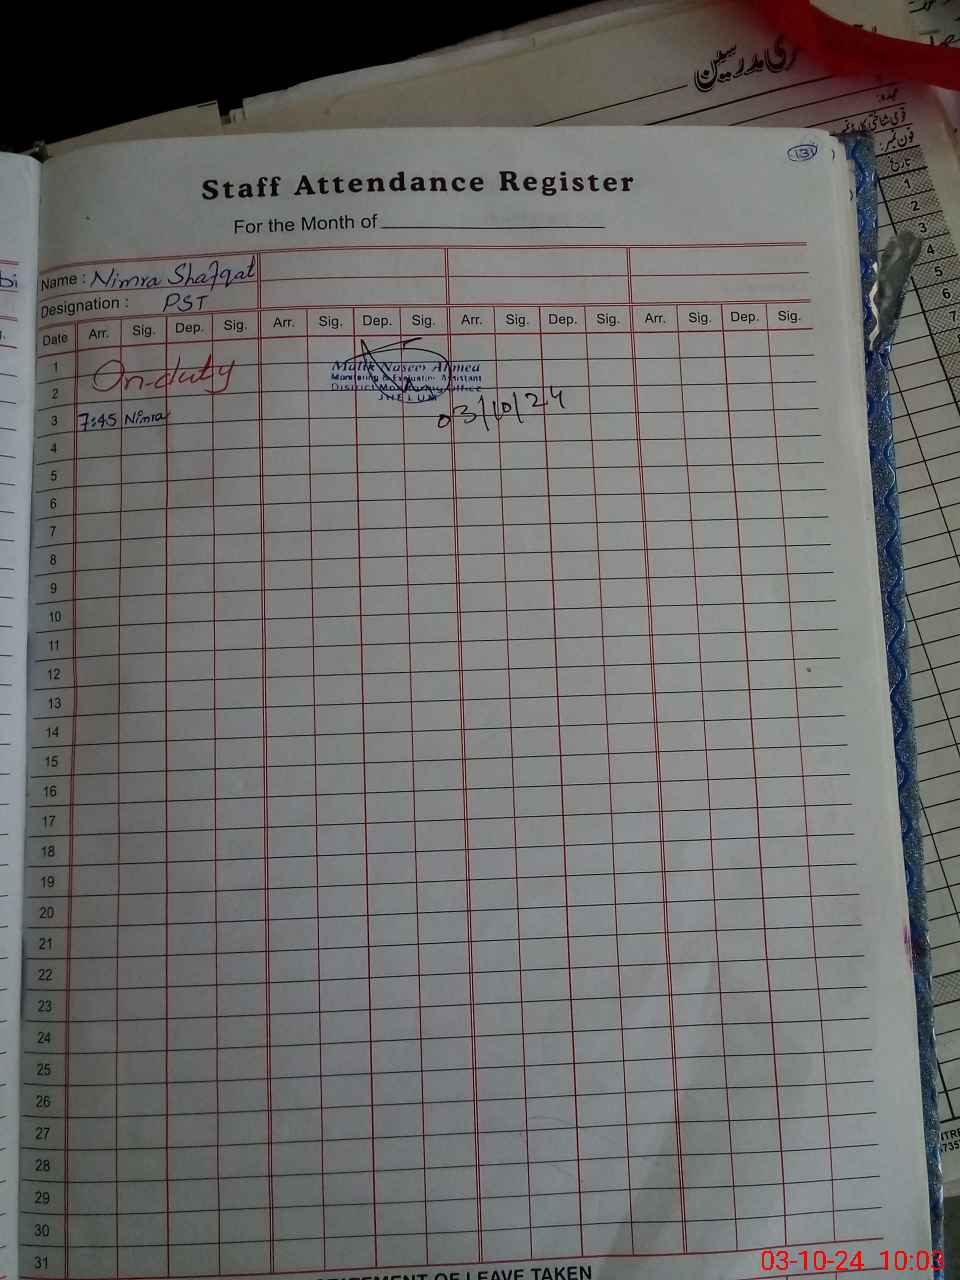 ری مدرسین
عہدہ:
قومی شناختی کارڈ نمبر
فون نمبر:
تاریخ
1
2
3
4
5
6
7
8
bi
13
Staff Attendance Register
For the Month of
Name : Nimra Shafqat
Designation : PST
Date Arr. Sig. Dep. Sig. Arr. Sig. Dep. Sig. Arr. Sig. Dep. Sig. Arr. Sig. Dep. Sig.
1
On-duty
Malik Naseer Ahmed
Monitoring & Evaluation Assistant
District Monitoring Office
JHELUM
2
03/10/24
3 7:45 Nimra
4
5
6
7
8
9
10
11
12
13
14
15
16
17
18
19
20
21
22
23
24
25
26
27
28
29
30
31
STATEMENT OF LEAVE TAKEN
03-10-24 10:03